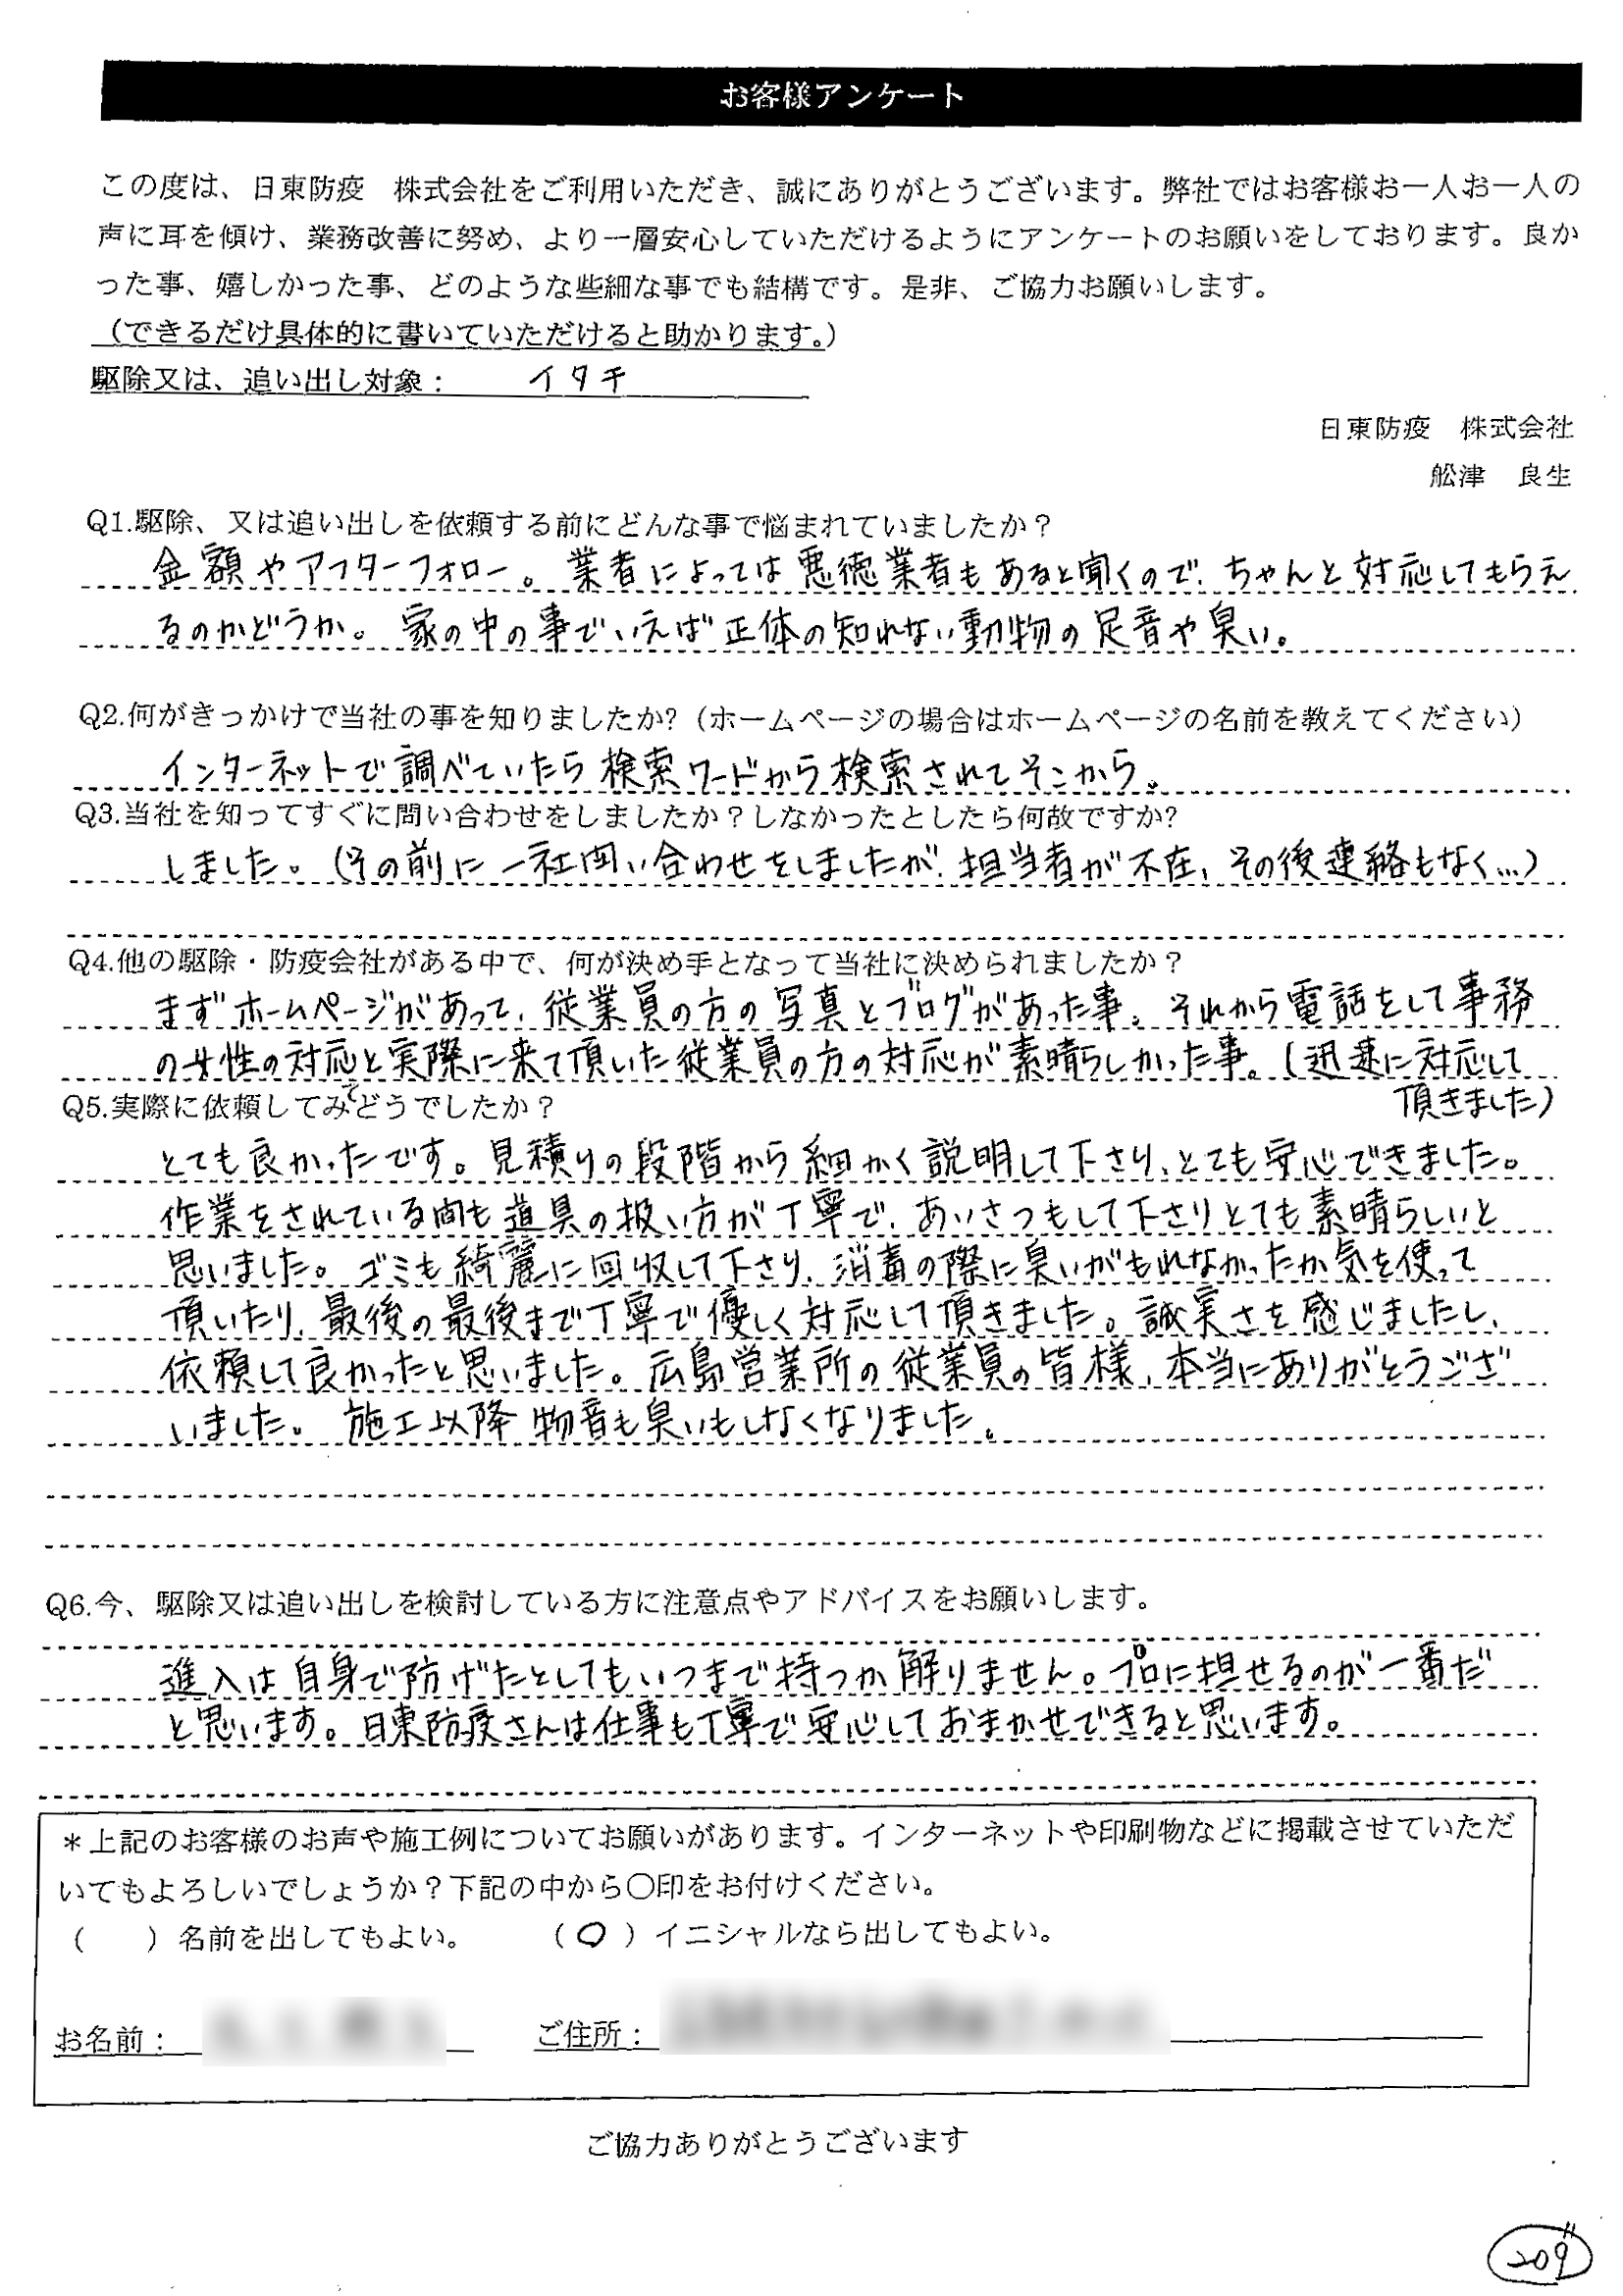 お客様アンケート
この度は、日東防疫　株式会社をご利用いただき、誠にありがとうございます。弊社ではお客様お一人お一人の
声に耳を傾け、業務改善に努め、より一層安心していただけるようにアンケートのお願いをしております。良か
った事、嬉しかった事、どのような些細な事でも結構です。是非、ご協力お願いします。
（できるだけ具体的に書いていただけると助かります。）
駆除又は、追い出し対象：　イタチ
日東防疫　株式会社
舩津　良生
Q1.駆除、又は追い出しを依頼する前にどんな事で悩まれていましたか？
金額やアフターフォロー。業者によっては悪徳業者もあると聞くので、ちゃんと対応してもらえ
るのかどうか。家の中の事でいえば正体の知れない動物の足音や臭い。
Q2.何がきっかけで当社の事を知りましたか?（ホームページの場合はホームページの名前を教えてください）
インターネットで調べていたら検索ワードから検索されてそこから。
Q3.当社を知ってすぐに問い合わせをしましたか？しなかったとしたら何故ですか?
しました。（その前に一社問い合わせをしましたが、担当者が不在、その後連絡もなく…）
Q4.他の駆除・防疫会社がある中で、何が決め手となって当社に決められましたか？
まずホームページがあって、従業員の方の写真とブログがあった事。それから電話をして事務
の女性の対応と実際に来て頂いた従業員の方の対応が素晴らしかった事。（迅速に対応して
頂きました）
Q5.実際に依頼してみてどうでしたか？
とても良かったです。見積りの段階から細かく説明して下さり、とても安心できました。
作業をされている間も道具の扱い方が丁寧で、あいさつもして下さりとても素晴らしいと
思いました。ゴミも綺麗に回収して下さり、消毒の際に臭いがもれなかったか気を使って
頂いたり、最後の最後まで丁寧で優しく対応して頂きました。誠実さを感じましたし、
依頼して良かったと思いました。広島営業所の従業員の皆様、本当にありがとうござ
いました。施工以降物音も臭いもしなくなりました。
Q6.今、駆除又は追い出しを検討している方に注意点やアドバイスをお願いします。
進入は自身で防げたとしてもいつまで持つか解りません。プロに担せるのが一番だ
と思います。日東防疫さんは仕事も丁寧で安心しておまかせできると思います。
＊上記のお客様のお声や施工例についてお願いがあります。インターネットや印刷物などに掲載させていただ
いてもよろしいでしょうか？下記の中から〇印をお付けください。
（　　）名前を出してもよい。　　（〇）イニシャルなら出してもよい。
お名前：　ご住所：
ご協力ありがとうございます
209